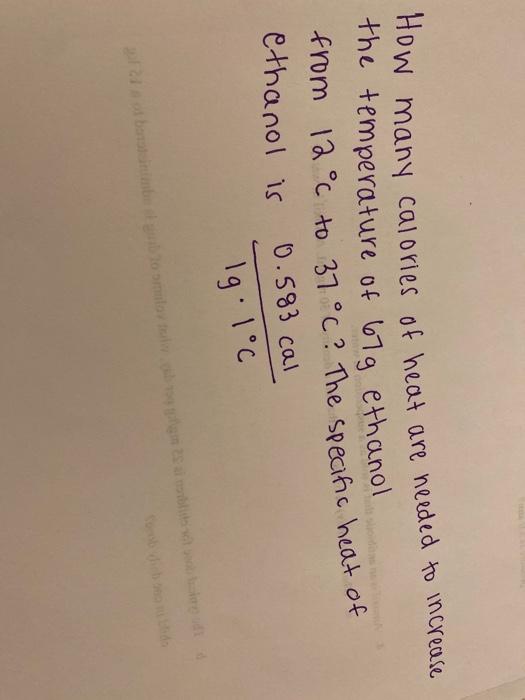 How many calories of heat are needed to increase
the temperature of 67g ethanol
from 12°C to 37°C? The specific heat of
ethanol is 0.583 cal
1g · 1°C